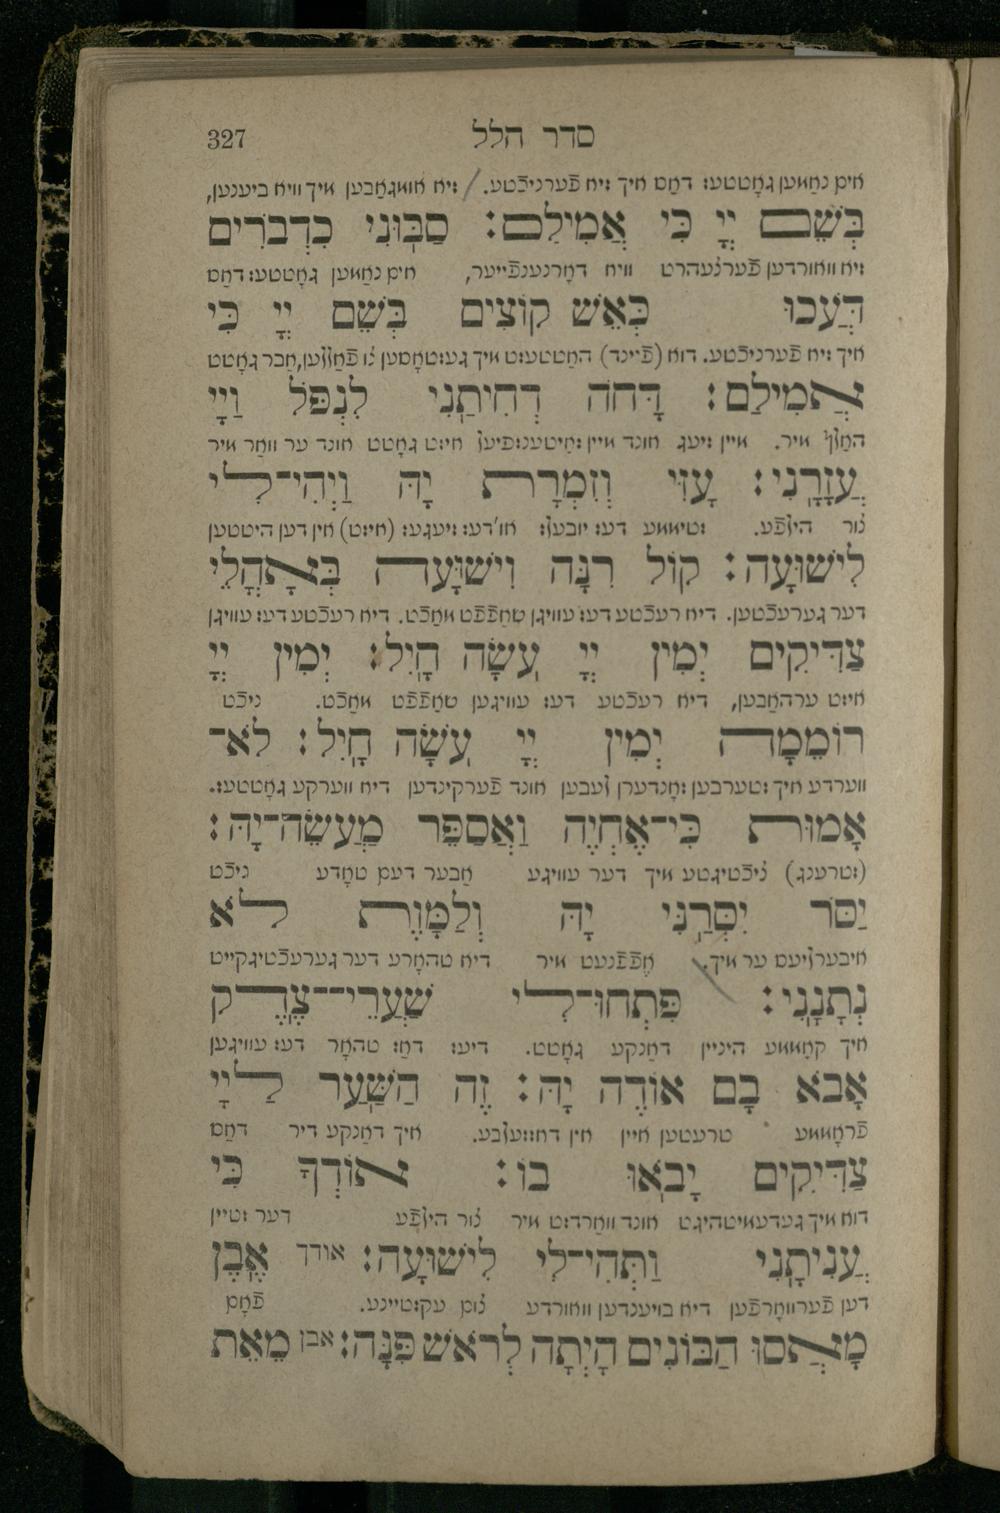 סדר הלל 327
אים נאַמען גאָטטעס דאַס איך זיא פֿערניכֿטע. זיא אומגאַבען מיך וויא ביענען,
בְּשֵׁם יְיָ כִּי אֲמִילַם׃ סַבּוּנִי כִדְבֹרִים
זיא וואורדען פֿערצעהרט וויא דאָרנענפֿייער, אים נאַמען גאָטטעס דאַס
דֹּעֲכוּ כְּאֵשׁ קוֹצִים בְּשֵׁם יְיָ כִּי
איך זיא פֿערניכֿטע. דוא (פֿיינד) האַטטעסט מיך געשטאָסען צו פֿאַללען, אַבר גאָטט
אֲמִילַם׃ דָּחֹה דְחִיתַנִי לִנְפֹּל וַיְיָ
האַלף מיר. מיין זיעג אונד מיין זאַיטענשפיעל איזט גאָטט אונד ער וואַר מיר
עֲזָרָנִי׃ עָזִּי וְזִמְרָת יָהּ וַיְהִי־לִי
צור הילפֿע. שטיממע דעס יובעלס או'דעס זיעגעס (איזט) אין דען היטטען
לִישׁוּעָה׃ קוֹל רִנָּה וִישׁוּעָה בְּאָהֳלֵי
דער גערעכֿטען. דיא רעכֿטע דעס עוויגן שאַפֿפֿט מאַכֿט. דיא רעכֿטע דעס עוויגן
צַדִּיקִים יְמִין יְיָ עֹשָׂה חָיִל׃ יְמִין יְיָ
איזט ערהאַבען, דיא רעכֿטע דעס עוויגען שאַפֿפֿט מאַכֿט. ניכֿט
רוֹמֵמָה יְמִין יְיָ עֹשָׂה חָיִל׃ לֹא־
ווערדע איך שטערבען זאָנדערן לעבען אונד פֿערקינדען דיא ווערקע גאָטטעס.
אָמוּת כִּי־אֶחְיֶה וַאֲסַפֵּר מַעֲשֵׂה־יָהּ׃
(שטרענג) ציכֿטיגטע מיך דער עוויגע אַבער דעם טאָדע ניכֿט
יַסֹּר יִסְּרַנִּי יָּהּ וְלַמָּוֶת לֹא
איבערליעס ער מיך. אָפֿפֿנעט מיר דיא טהאָרע דער גערעכֿטיגקייט
נְתָנָנִי׃ פִּתְחוּ־לִי שַׁעֲרֵי־צֶדֶק
איך קאָממע היניין דאַנקע גאָטט. דיעס דאַז טהאָר דעס עוויגען
אָבֹא בָם אוֹדֶה יָהּ׃ זֶה הַשַּׁעַר לַיְיָ
פֿראָממע טרעטען איין אין דאַססעלבע. איך דאַנקע דיר דאַס
צַדִּיקִים יָבֹאוּ בוֹ׃ אוֹדְךָ כִּי
דוא מיך געדעמיטהיגט אונד וואַרדסט מיר צור הילפֿע דער שטיין
עֲנִיתָנִי וַתְּהִי־לִי לִישׁוּעָה׃ אודך אֶבֶן
דען פֿערוואָרפֿען דיא בויענדען וואורדע צום עקשטיינע. פֿאָם
מָאֲסוּ הַבּוֹנִים הָיְתָה לְרֹאשׁ פִּנָּה׃ אבן מֵאֵת